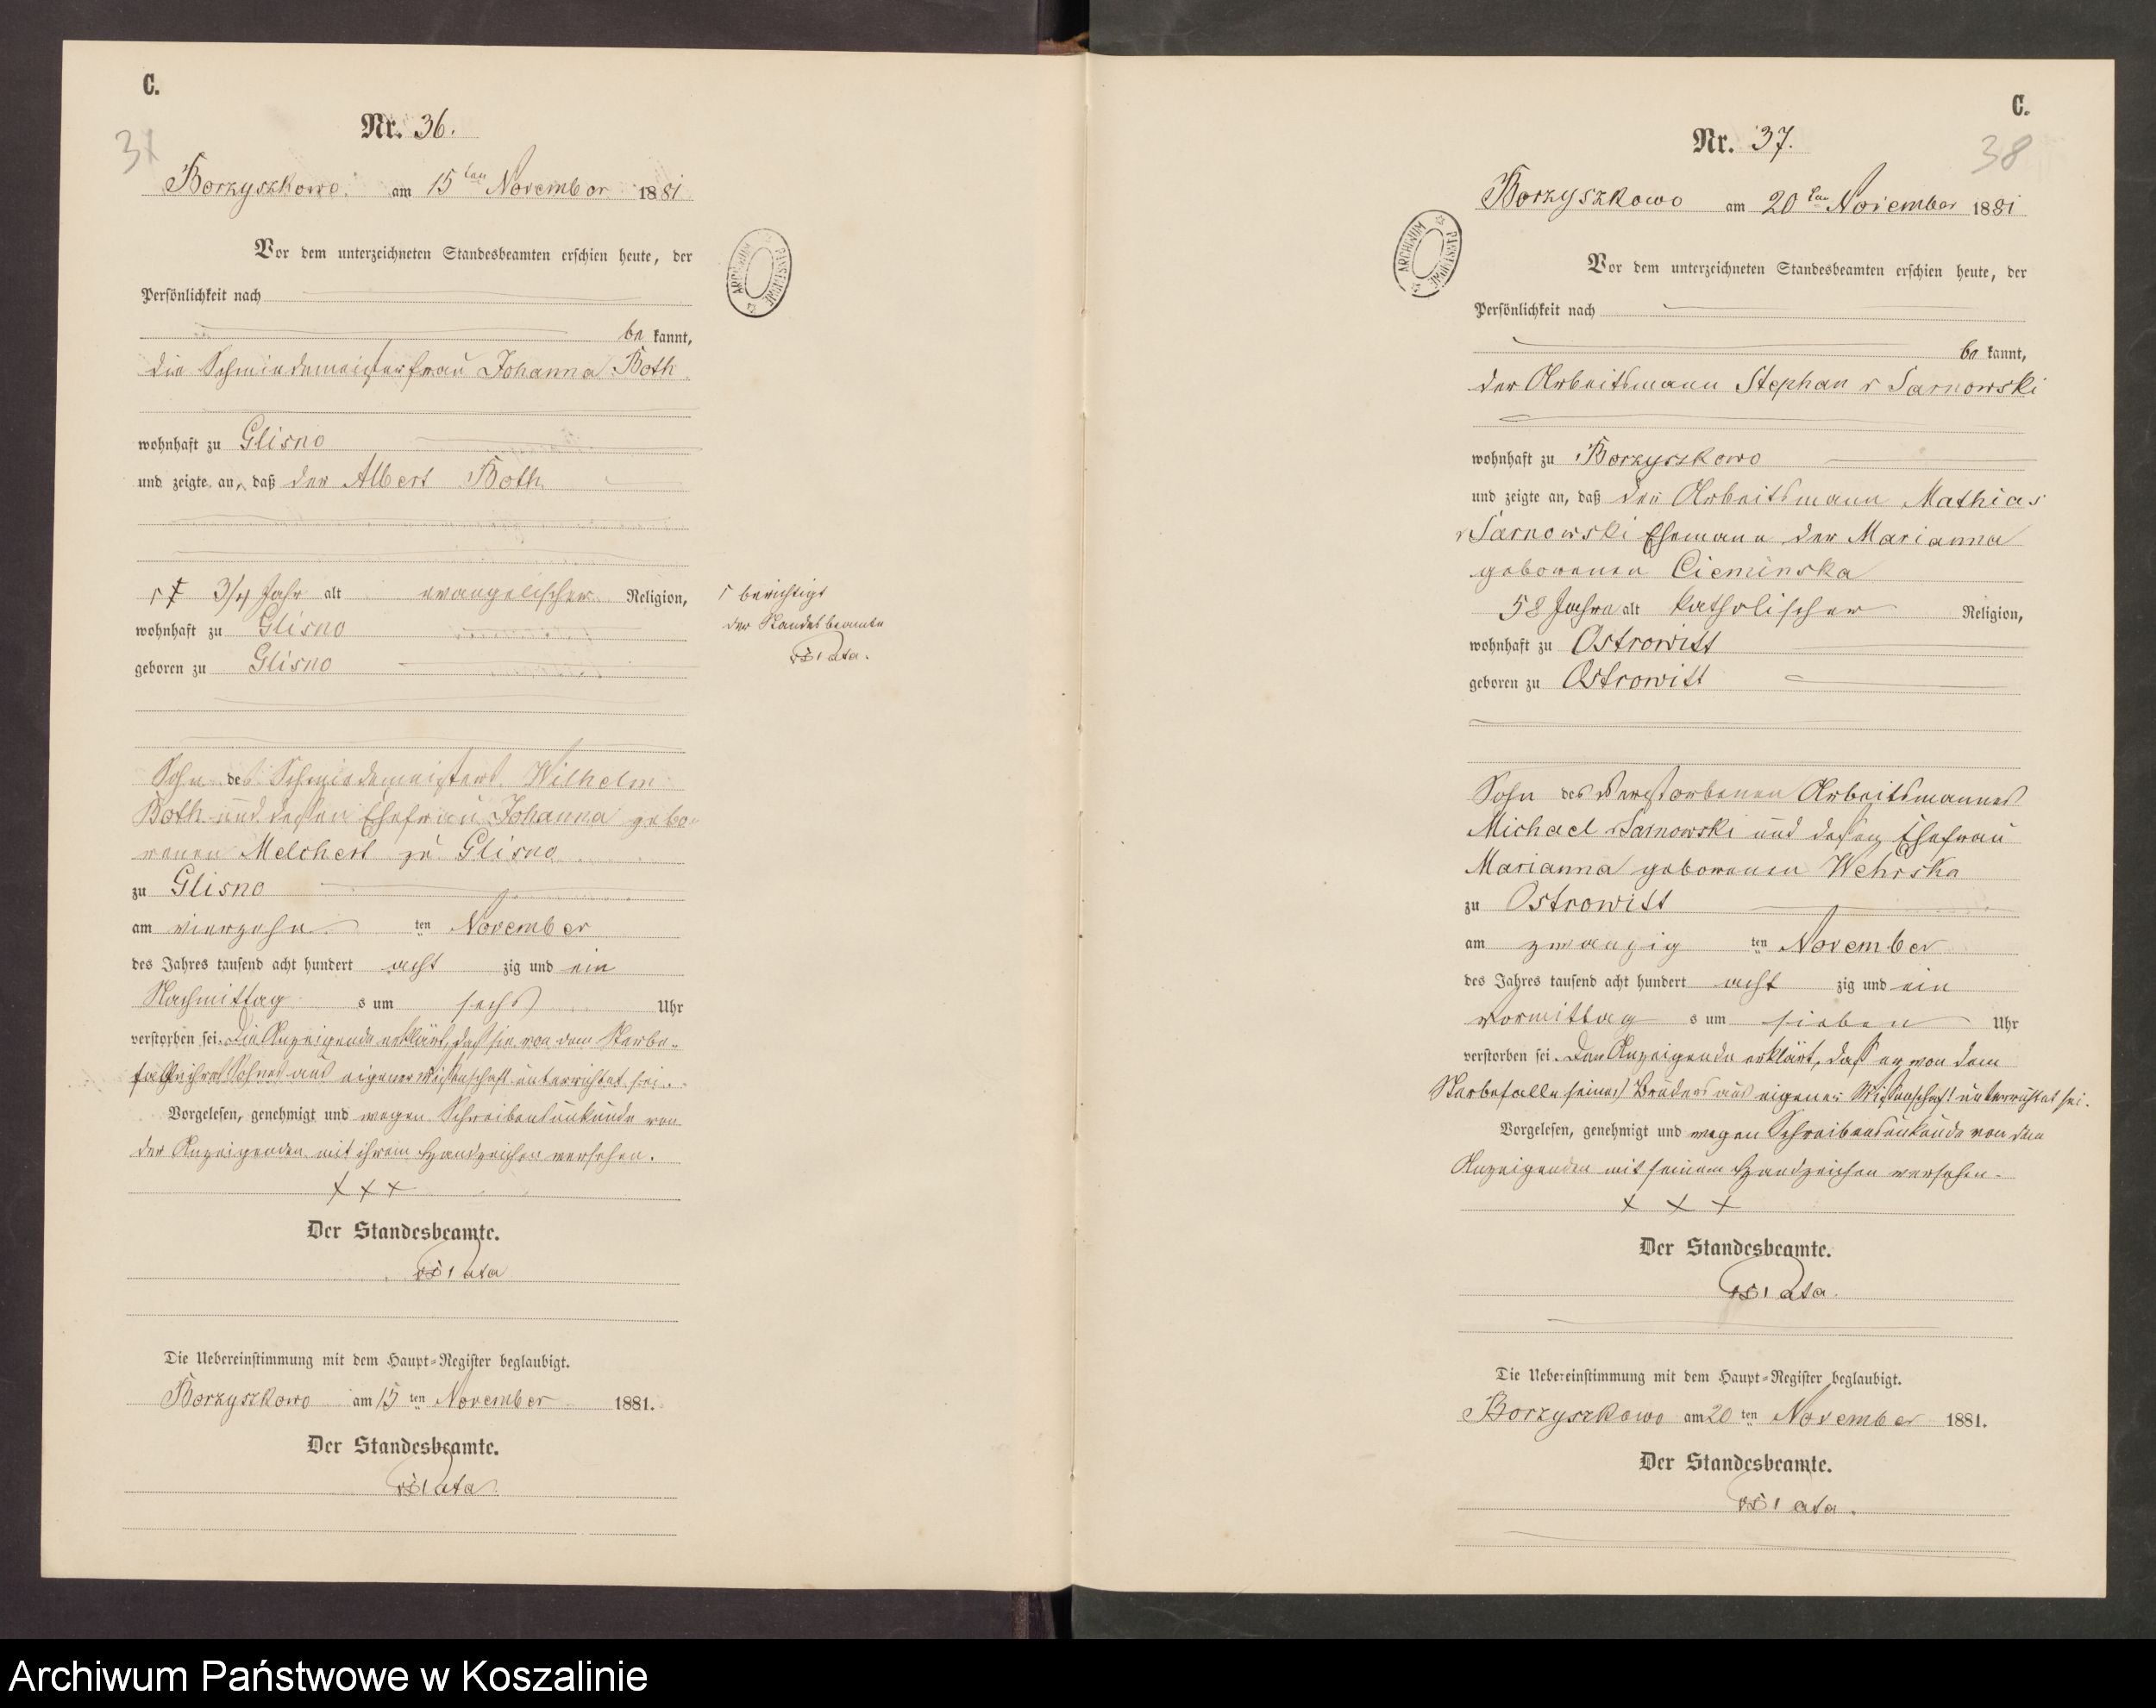 C.
Nr. 36.
Borzyszkowo am 15ten November 1881
Vor dem unterzeichneten Standesbeamten erschien heute, der
Persönlichkeit nach
be kannt,
die Schmiedemeisterfrau Johanna Both
wohnhaft zu Glisno
und zeigte an, daß der Albert Both
3/4 Jahr alt evangelischer Religion,
wohnhaft zu Glisno
geboren zu Glisno
Sohn des Schmiedemeisters Wilhelm
Both und dessen Ehefrau Johanna gebo-
renen Melchert zu Glisno
zu Glisno
am vierzehn ten November
des Jahres tausend acht hundert acht zig und ein
Nachmittag s um sechs Uhr
verstorben sei. Die Anzeigende erklärt, daß sie von dem Sterbe-
falle ihres Sohnes aus eigener Wissenschaft unterrichtet sei.
Vorgelesen, genehmigt und wegen Schreibensunkunde von
der Anzeigenden mit ihrem Handzeichen versehen.
+++
Der Standesbeamte.
Die Uebereinstimmung mit dem Haupt-Register beglaubigt.
Borzyszkowo am 15 ten November 1881.
Der Standesbeamte.
berichtigt
der Standesbeamte
ARCHIWUM PAŃSTWOWE
C.
38
Nr. 37.
Borzyszkowo am 20ten November 1881
Vor dem unterzeichneten Standesbeamten erschien heute, der
Persönlichkeit nach
be kannt,
der Arbeitsmann Stephan v Sarnowski
wohnhaft zu Borzyszkowo
und zeigte an, daß der Arbeitsmann Mathias
v Sarnowski Ehemann der Marianna
geborenen Cieminska
58 Jahre alt katholischer Religion,
wohnhaft zu Ostrowitt
geboren zu Ostrowitt
Sohn des verstorbenen Arbeitsmannes
Michael v Sarnowski und dessen Ehefrau
Marianna geborenen Wehrska
zu Ostrowitt
am zwanzig ten November
des Jahres tausend acht hundert acht zig und ein
Vormittag s um sieben Uhr
verstorben sei. Der Anzeigende erklärt, daß er von dem
Sterbefalle seines Bruders aus eigener Wissenschaft unterrichtet sei.
Vorgelesen, genehmigt und wegen Schreibensunkunde von dem
Anzeigenden mit seinem Handzeichen versehen.
+ + +
Der Standesbeamte.
Die Uebereinstimmung mit dem Haupt-Register beglaubigt.
Borzyszkowo am 20 ten November 1881.
Der Standesbeamte.
ARCHIWUM PAŃSTWOWE
Archiwum Państwowe w Koszalinie